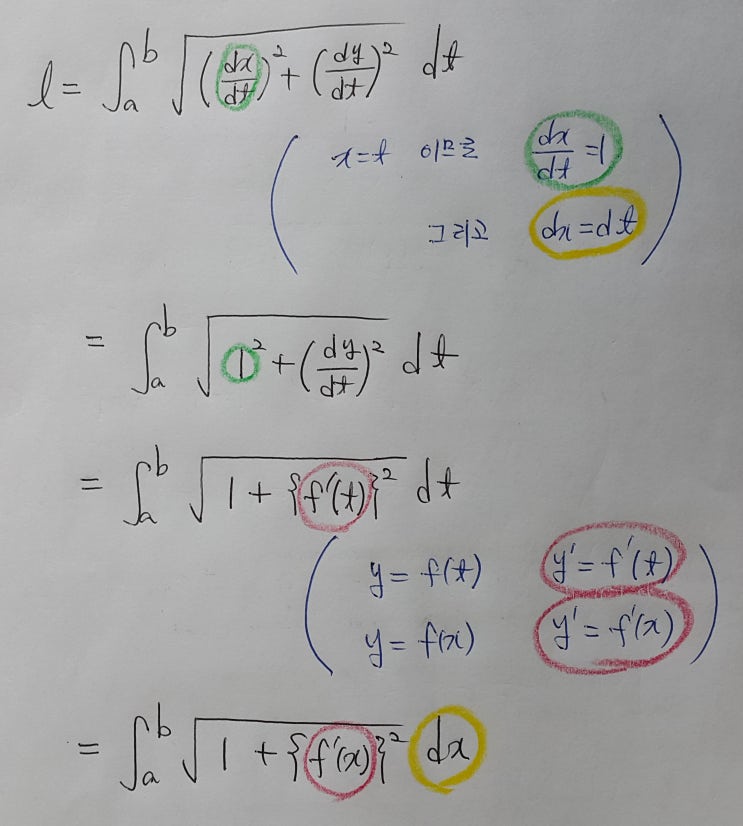 l = ∫ₐᵇ √((dx/dt)² + (dy/dt)²) dt
( x=t 이므로 dx/dt =1
그리고 dx=dt )
= ∫ₐᵇ √(1² + (dy/dt)²) dt
= ∫ₐᵇ √(1 + {f'(t)}²) dt
( y = f(t) y' = f'(t)
y = f(x) y' = f'(x) )
= ∫ₐᵇ √(1 + {f'(x)}²) dx